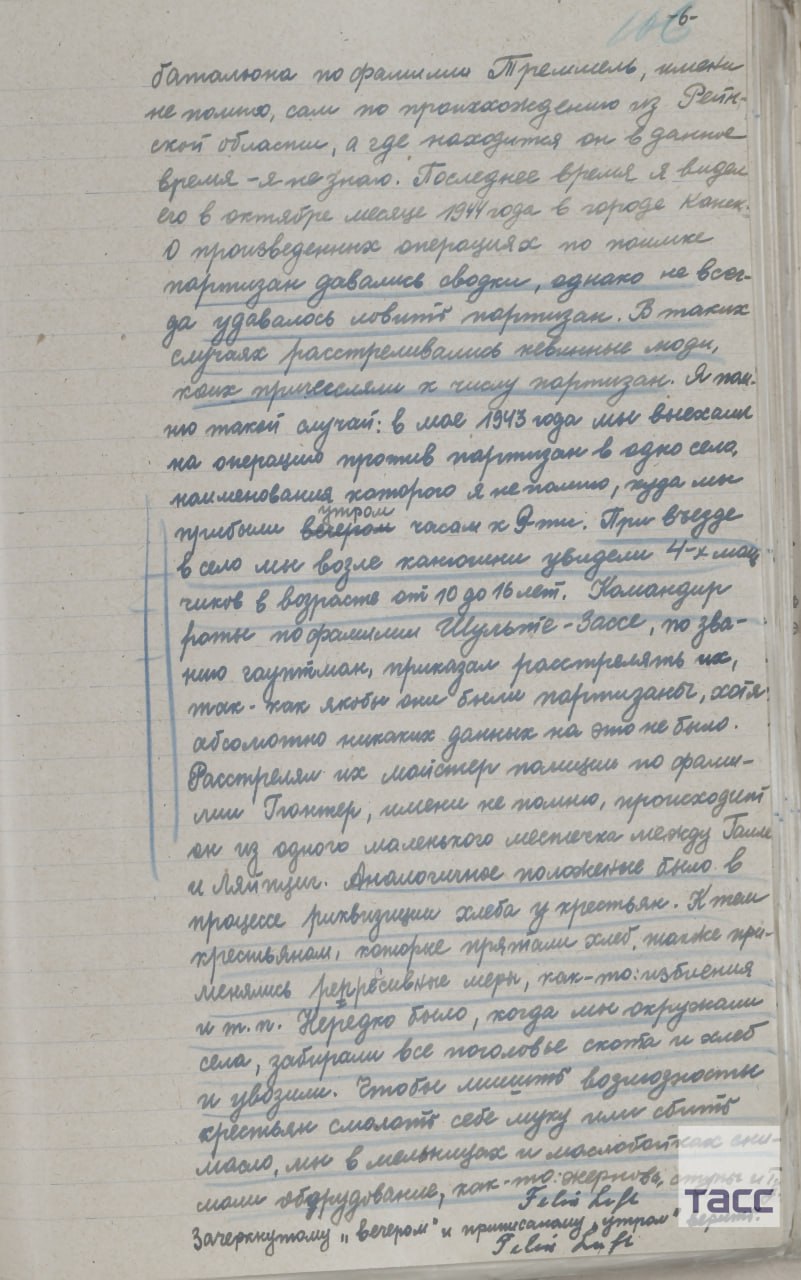 -6-
батальона по фамилии Треммель, имени
не помню, сам по происхождению из Рейн-
ской области, а где находится он в данное
время - я не знаю. Последнее время я видел
его в октябре месяце 1944 года в городе Канек.
О произведенных операциях по поимке
партизан давались сводки, однако не всег-
да удавалось ловить партизан. В таких
случаях расстреливались невинные люди,
коих причисляли к числу партизан. Я пом-
ню такой случай: в мае 1943 года мы выехали
на операцию против партизан в одно село,
наименования которого я не помню, куда мы
утром
прибыли вечером часам к 9-ти. При въезде
в село мы возле конюшни увидели 4-х маль
чиков в возрасте от 10 до 16 лет. Командир
роты по фамилии Шульте-Зассе, по зва-
нию гауптман, приказал расстрелять их,
так-как якобы они были партизаны, хотя
абсолютно никаких данных на это не было.
Расстрелял их майстер полиции по фами-
лии Гюнтер, имени не помню, происходит
он из одного маленького местечка между Галле
и Ляйпциг. Аналогичное положение было в
процессе риквизиции хлеба у крестьян. К тем
крестьянам, которые прятали хлеб, также при-
менялись репресивные меры, как-то: избиения
и т.п. Нередко было, когда мы окружали
села, забирали все поголовье скота и хлеб
и увозили. Чтобы лишить возможности
крестьян смолоть себе муку или сбить
масло, мы в мельницах и маслобойках сни-
мали оборудование, как-то: жернова, ступы и т.
Зачеркнутому „вечером" и приписаному „утром" верить.
ТАСС